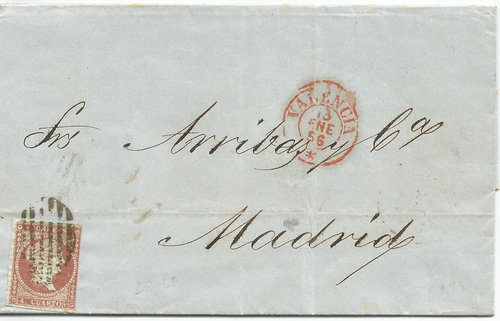 VALENCIA
13
ENE
56
*
Srs Arribas y Cª
Madrid
4. CUARTOS